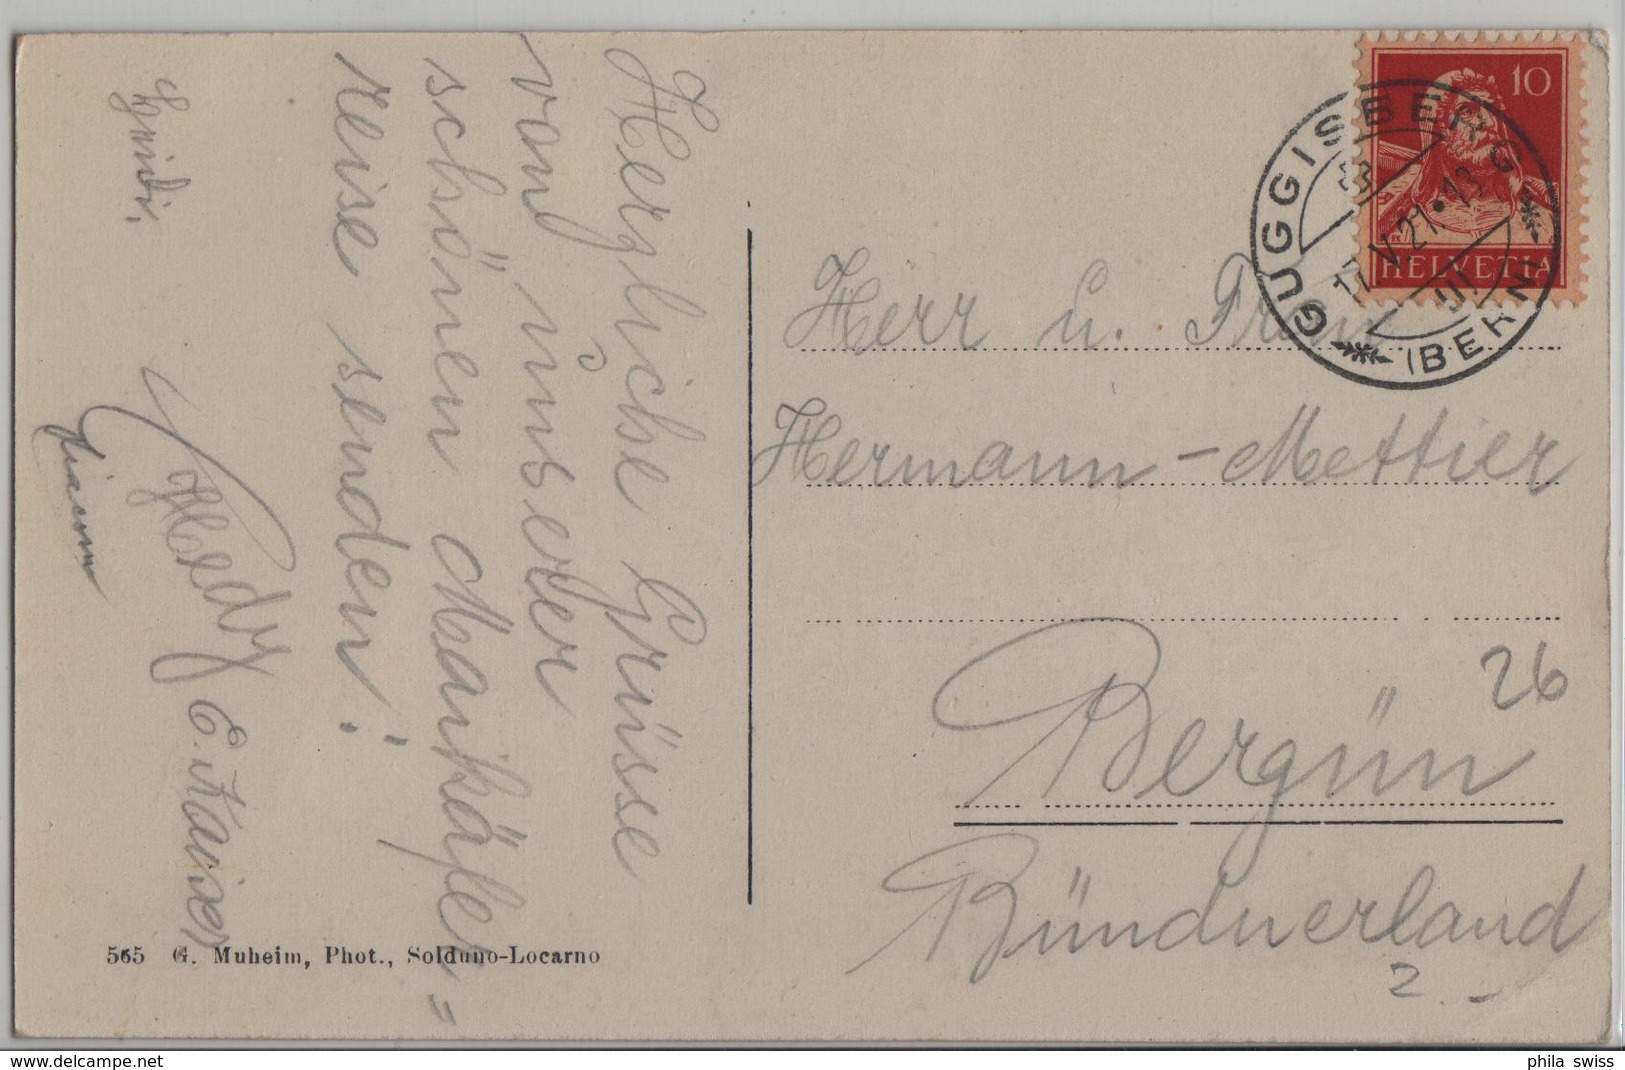 Herzliche Grüsse
von unserer
schönen Maikäfer=
reise senden:
Hedy E. Kaiser
565 G. Muheim, Phot., Solduno-Locarno
10
HELVETIA
GUGGISBERG
(BERN)
17.V.21
Herr u. Frau
Hermann-Mettier
26
Bergün
Bündnerland
2.-
www.delcampe.net
phila swiss